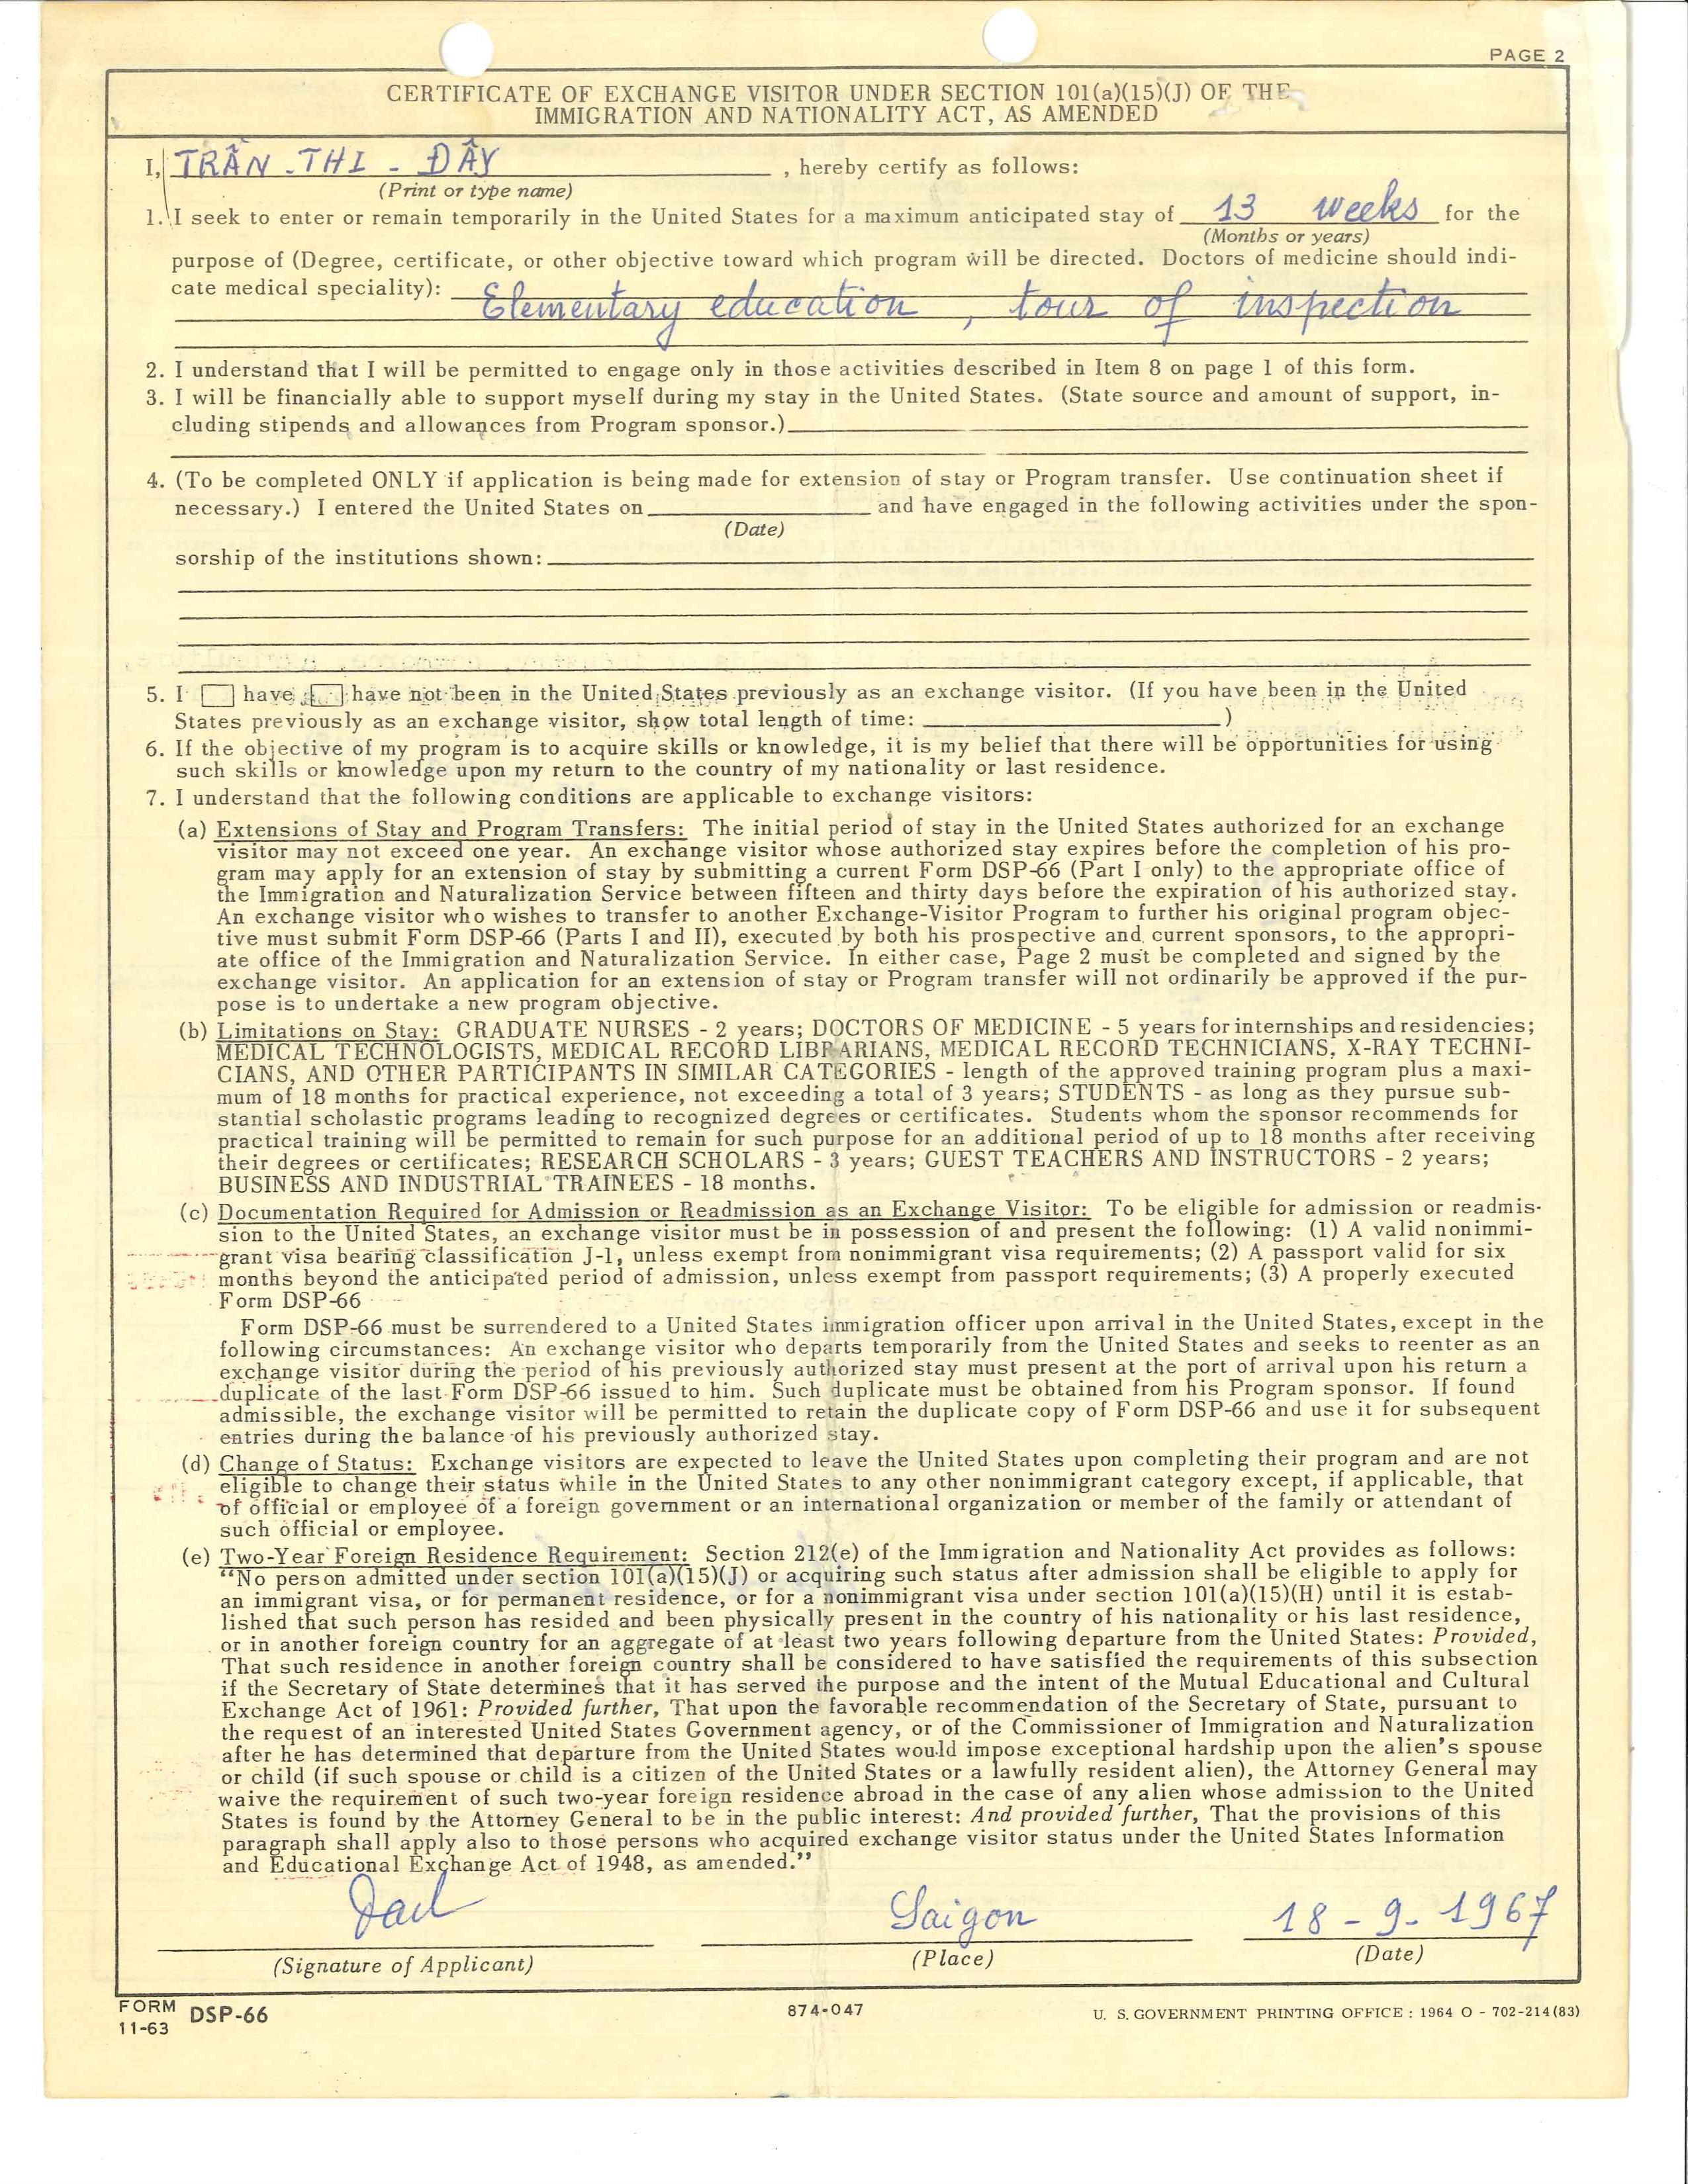 PAGE 2
CERTIFICATE OF EXCHANGE VISITOR UNDER SECTION 101(a)(15)(J) OF THE
IMMIGRATION AND NATIONALITY ACT, AS AMENDED
I, TRẦN - THI - ĐÂY , hereby certify as follows:
(Print or type name)
1. I seek to enter or remain temporarily in the United States for a maximum anticipated stay of 13 weeks for the
(Months or years)
purpose of (Degree, certificate, or other objective toward which program will be directed. Doctors of medicine should indi-
cate medical speciality): Elementary education, tour of inspection
2. I understand that I will be permitted to engage only in those activities described in Item 8 on page 1 of this form.
3. I will be financially able to support myself during my stay in the United States. (State source and amount of support, in-
cluding stipends and allowances from Program sponsor.)
4. (To be completed ONLY if application is being made for extension of stay or Program transfer. Use continuation sheet if
necessary.) I entered the United States on and have engaged in the following activities under the spon-
(Date)
sorship of the institutions shown:
5. I have have not been in the United States previously as an exchange visitor. (If you have been in the United
States previously as an exchange visitor, show total length of time: )
6. If the objective of my program is to acquire skills or knowledge, it is my belief that there will be opportunities for using
such skills or knowledge upon my return to the country of my nationality or last residence.
7. I understand that the following conditions are applicable to exchange visitors:
(a) Extensions of Stay and Program Transfers: The initial period of stay in the United States authorized for an exchange
visitor may not exceed one year. An exchange visitor whose authorized stay expires before the completion of his pro-
gram may apply for an extension of stay by submitting a current Form DSP-66 (Part I only) to the appropriate office of
the Immigration and Naturalization Service between fifteen and thirty days before the expiration of his authorized stay.
An exchange visitor who wishes to transfer to another Exchange-Visitor Program to further his original program objec-
tive must submit Form DSP-66 (Parts I and II), executed by both his prospective and current sponsors, to the appropri-
ate office of the Immigration and Naturalization Service. In either case, Page 2 must be completed and signed by the
exchange visitor. An application for an extension of stay or Program transfer will not ordinarily be approved if the pur-
pose is to undertake a new program objective.
(b) Limitations on Stay: GRADUATE NURSES - 2 years; DOCTORS OF MEDICINE - 5 years for internships and residencies;
MEDICAL TECHNOLOGISTS, MEDICAL RECORD LIBRARIANS, MEDICAL RECORD TECHNICIANS, X-RAY TECHNI-
CIANS, AND OTHER PARTICIPANTS IN SIMILAR CATEGORIES - length of the approved training program plus a maxi-
mum of 18 months for practical experience, not exceeding a total of 3 years; STUDENTS - as long as they pursue sub-
stantial scholastic programs leading to recognized degrees or certificates. Students whom the sponsor recommends for
practical training will be permitted to remain for such purpose for an additional period of up to 18 months after receiving
their degrees or certificates; RESEARCH SCHOLARS - 3 years; GUEST TEACHERS AND INSTRUCTORS - 2 years;
BUSINESS AND INDUSTRIAL TRAINEES - 18 months.
(c) Documentation Required for Admission or Readmission as an Exchange Visitor: To be eligible for admission or readmis-
sion to the United States, an exchange visitor must be in possession of and present the following: (1) A valid nonimmi-
grant visa bearing classification J-1, unless exempt from nonimmigrant visa requirements; (2) A passport valid for six
months beyond the anticipated period of admission, unless exempt from passport requirements; (3) A properly executed
Form DSP-66
Form DSP-66 must be surrendered to a United States immigration officer upon arrival in the United States, except in the
following circumstances: An exchange visitor who departs temporarily from the United States and seeks to reenter as an
exchange visitor during the period of his previously authorized stay must present at the port of arrival upon his return a
duplicate of the last Form DSP-66 issued to him. Such duplicate must be obtained from his Program sponsor. If found
admissible, the exchange visitor will be permitted to retain the duplicate copy of Form DSP-66 and use it for subsequent
entries during the balance of his previously authorized stay.
(d) Change of Status: Exchange visitors are expected to leave the United States upon completing their program and are not
eligible to change their status while in the United States to any other nonimmigrant category except, if applicable, that
of official or employee of a foreign government or an international organization or member of the family or attendant of
such official or employee.
(e) Two-Year Foreign Residence Requirement: Section 212(e) of the Immigration and Nationality Act provides as follows:
“No person admitted under section 101(a)(15)(J) or acquiring such status after admission shall be eligible to apply for
an immigrant visa, or for permanent residence, or for a nonimmigrant visa under section 101(a)(15)(H) until it is estab-
lished that such person has resided and been physically present in the country of his nationality or his last residence,
or in another foreign country for an aggregate of at least two years following departure from the United States: Provided,
That such residence in another foreign country shall be considered to have satisfied the requirements of this subsection
if the Secretary of State determines that it has served the purpose and the intent of the Mutual Educational and Cultural
Exchange Act of 1961: Provided further, That upon the favorable recommendation of the Secretary of State, pursuant to
the request of an interested United States Government agency, or of the Commissioner of Immigration and Naturalization
after he has determined that departure from the United States would impose exceptional hardship upon the alien's spouse
or child (if such spouse or child is a citizen of the United States or a lawfully resident alien), the Attorney General may
waive the requirement of such two-year foreign residence abroad in the case of any alien whose admission to the United
States is found by the Attorney General to be in the public interest: And provided further, That the provisions of this
paragraph shall apply also to those persons who acquired exchange visitor status under the United States Information
and Educational Exchange Act of 1948, as amended.”
Saigon 18-9-1967
(Signature of Applicant) (Place) (Date)
FORM DSP-66 874-047 U. S. GOVERNMENT PRINTING OFFICE : 1964 O - 702-214(83)
11-63